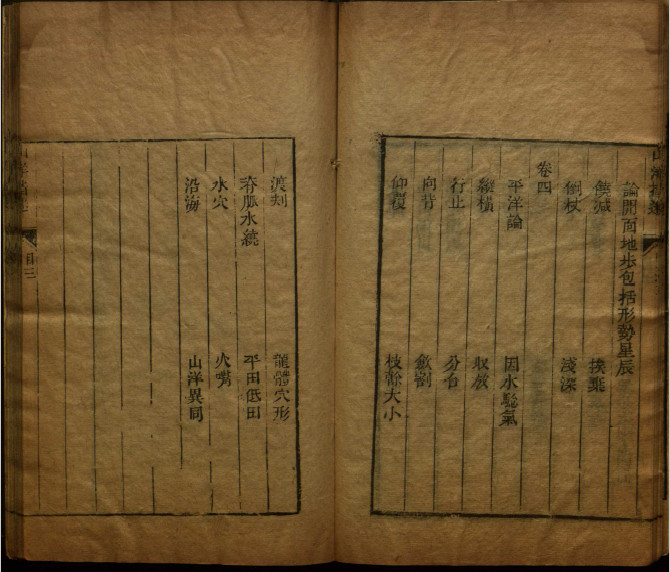 論開面地步包括形勢星辰
饒減 挨棄
倒杖 淺深
卷四
平洋論 因水驗氣
縱橫 收放
行止 分合
向背 斂割
仰覆 枝幹大小
渡刦 龍體穴形
脊脈水繞 平田低田
水穴 火嘴
沿海 山洋異同
目三